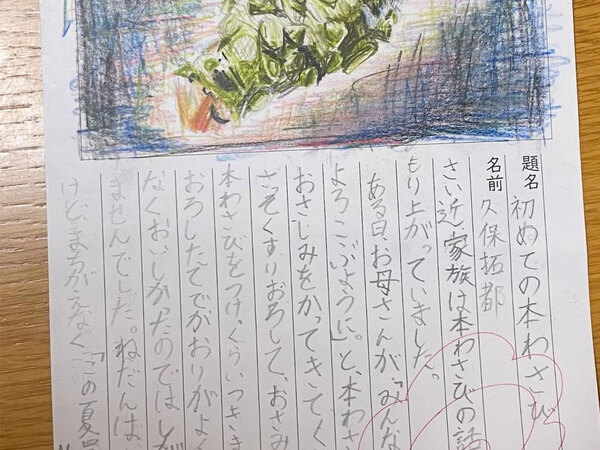 題名 初めての本わさび
名前 久保拓都
さい近家族は本わさびの話
もり上がっていました。
ある日、お母さんが、「みんな
よろこぶように。」と、本わさ
おさしみをかってきてく
さっそくすりおろして、おさみ
本わさびをつけ、くらいつきま
おろしたてでがおりがよく
なくおいしかったのではしが
ませんでした。ねだんは、
けど、まちがえなく「この夏